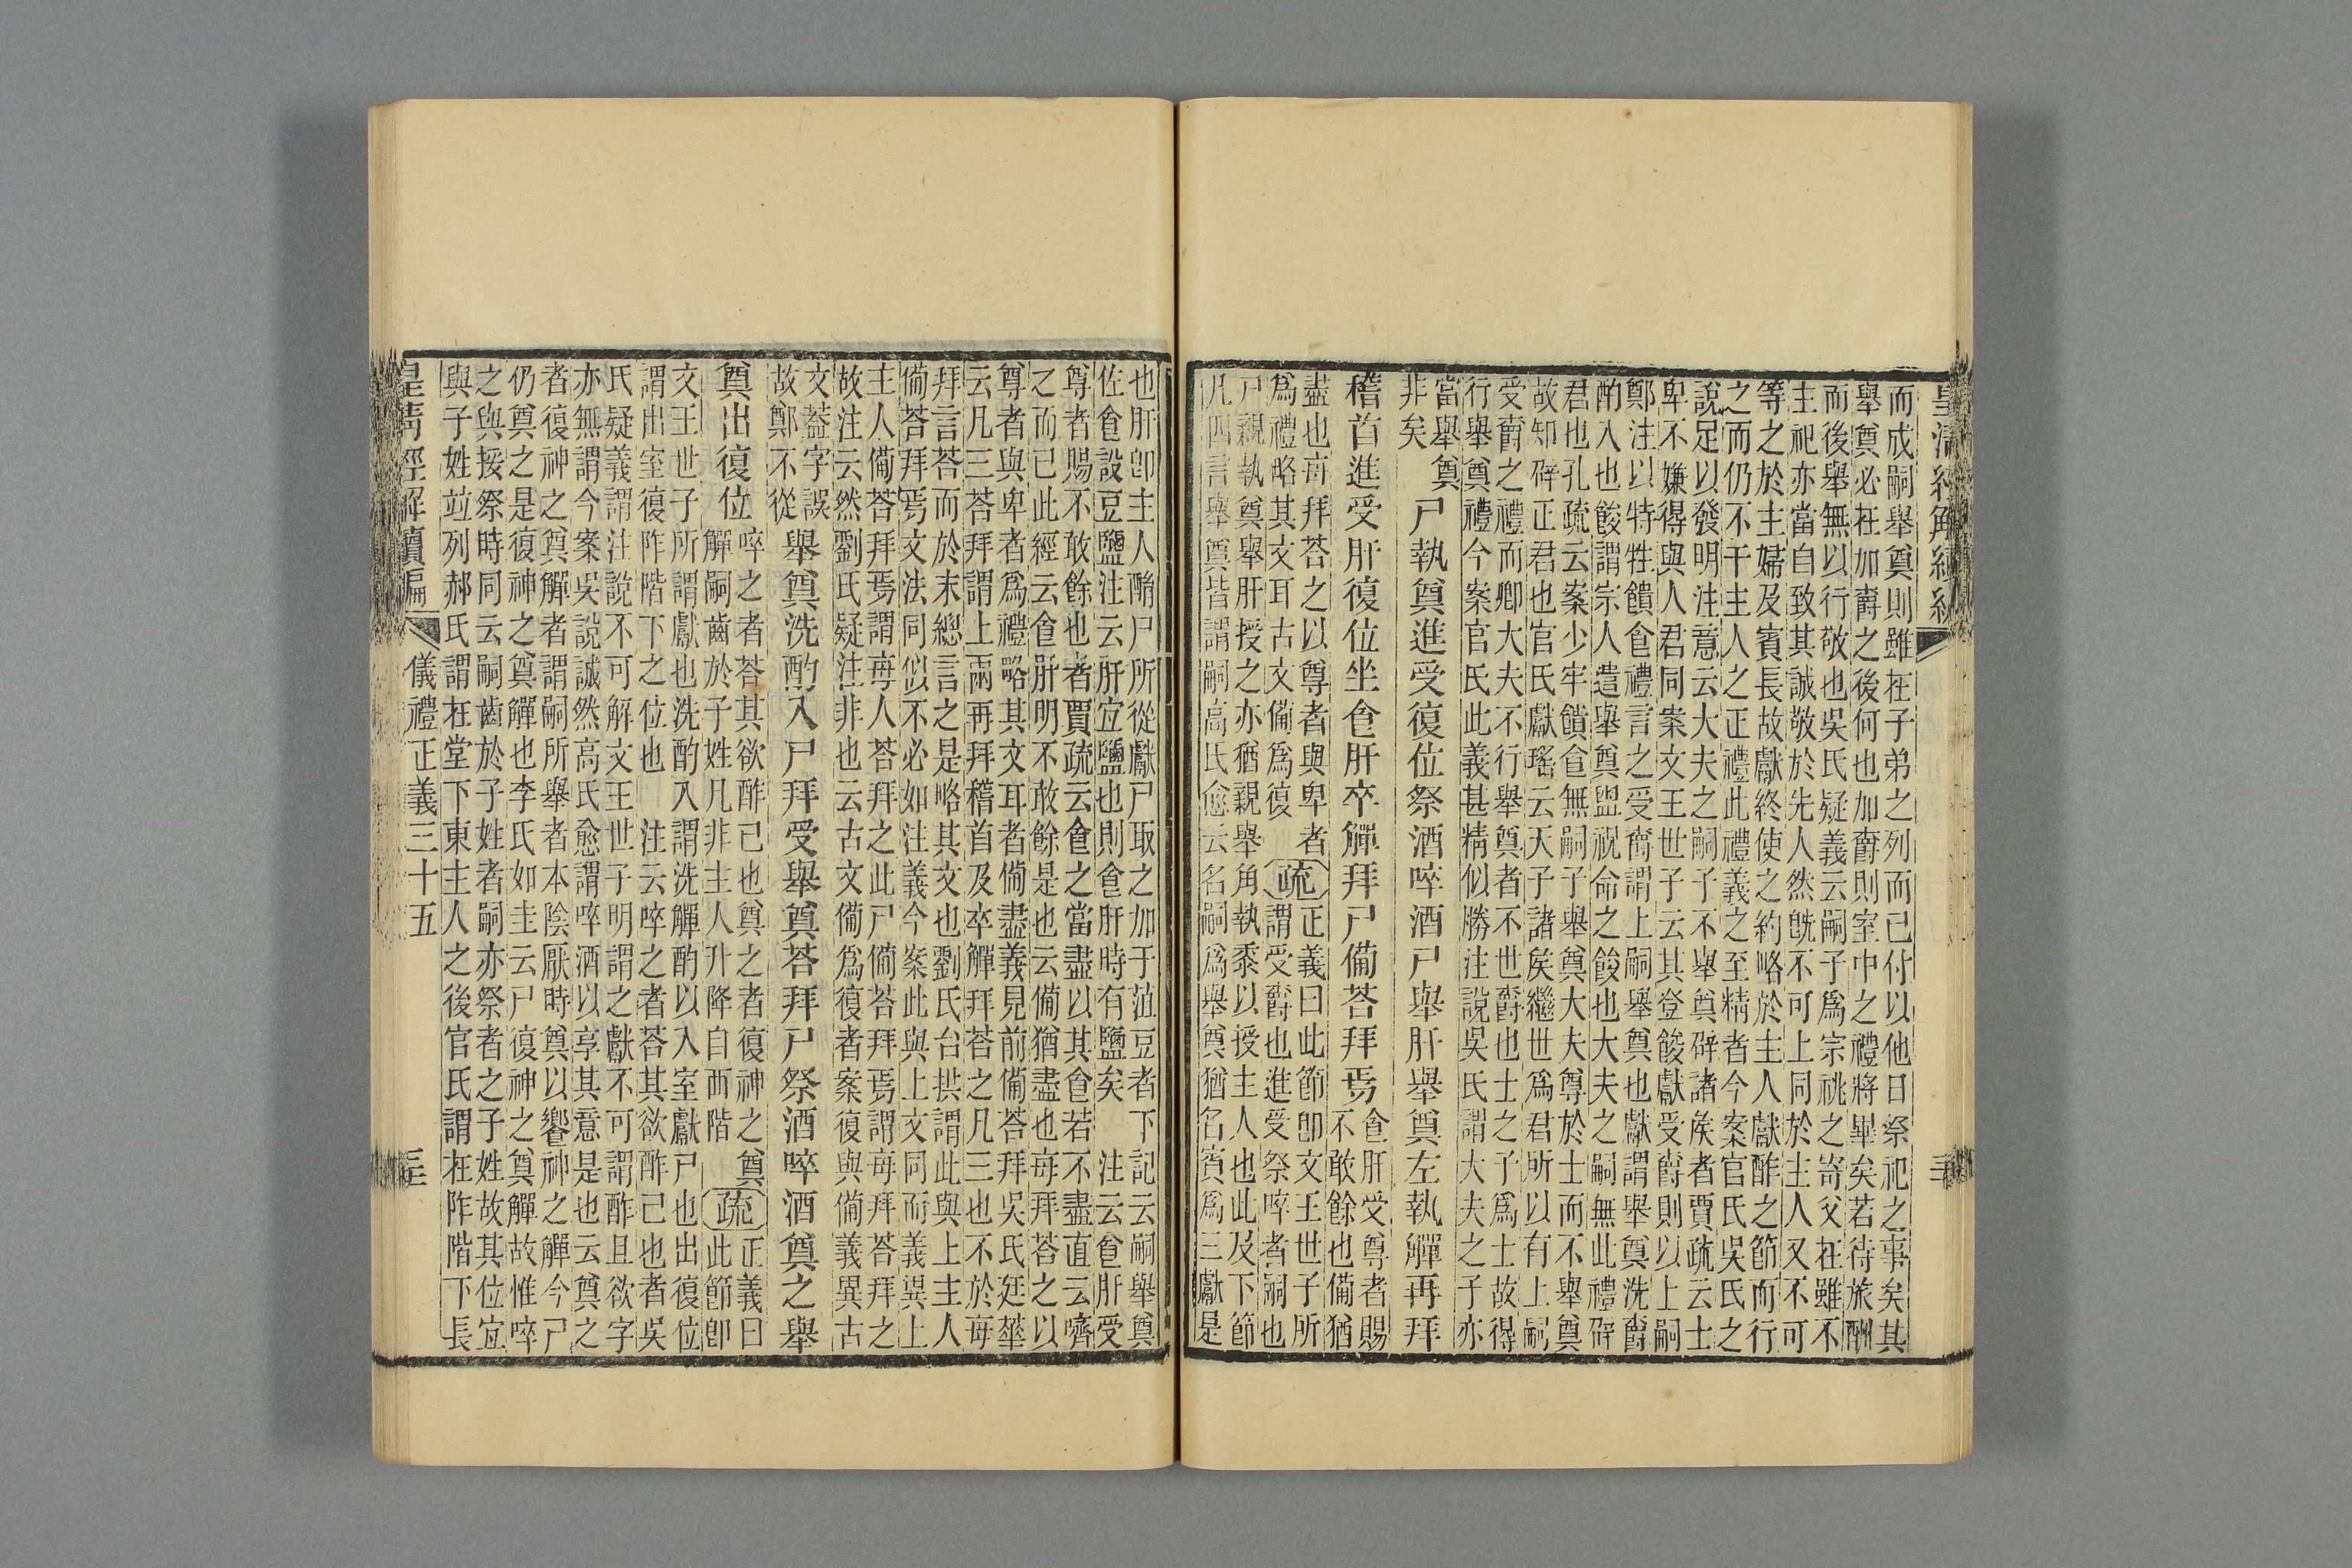 而成嗣舉奠則雖在子弟之列而已付以他日祭祀之事矣其
舉奠必在加爵之後何也加爵則室中之禮將畢矣若待旅酬
而後舉無以行敬也吳氏疑義云嗣子爲宗祧之寄父在雖不
主祀亦當自致其誠敬於先人然旣不可上同於主人又不可
等之於主婦及賓長故獻終使之約略於主人獻酢之節而行
之而仍不干主人之正禮此禮義之至精者今案官氏吳氏之
說足以發明注意云大夫之嗣子不舉奠辟諸矦者賈疏云士
卑不嫌得與人君同案文王世子云其登餕獻受爵則以上嗣
鄭注以特牲饋食禮言之受爵謂上嗣舉奠也獻謂舉奠洗爵
酌入也餕謂宗人遣舉奠盥祝命之餕也大夫之嗣無此禮辟
君也孔疏云案少牢饋食無嗣子舉奠大夫尊於士而不舉奠
故知辟正君也官氏獻瑤云天子諸矦繼世爲君所以有上嗣
受爵之禮而卿大夫不行舉奠者不世爵也士之子爲士故得
行舉奠禮今案官氏此義甚精似勝注說吳氏謂大夫之子亦
當舉奠
非矣
尸執奠進受復位祭酒啐酒尸舉肝舉奠左執觶再拜
稽首進受肝復位坐食肝卒觶拜尸備荅拜焉
食肝受尊者賜
不敢餘也備猶
盡也每拜荅之以尊者與卑者
爲禮略其文耳古文備爲復
疏
正義曰此節卽文王世子所
謂受爵也進受祭啐者嗣也
尸親執奠舉肝授之亦猶親舉角執黍以授主人也此及下節
凡四言舉奠皆謂嗣高氏愈云名嗣爲舉奠猶名賓爲三獻是
也肝卽主人酳尸所從獻尸取之加于菹豆者下記云嗣舉奠
佐食設豆鹽注云肝宜鹽也則食肝時有鹽矣 注云食肝受
尊者賜不敢餘也者賈疏云食之當盡以其食若不盡直云嚌
之而已此經云食肝明不敢餘是也云備猶盡也每拜荅之以
尊者與卑者爲禮略其文耳者備盡義見前備荅拜吳氏廷華
云凡三荅拜謂上兩再拜稽首及卒觶拜荅之凡三也不於每
拜言荅而於末總言之是略其文也劉氏台拱謂此與上主人
備荅拜焉文法同似不必如注義今案此與上文同而義異上
主人備荅拜焉謂每人荅拜之此尸備荅拜焉謂每拜荅拜之
故注云然劉氏疑注非也云古文備爲復者案復與備義異古
文葢字誤
故鄭不從
舉奠洗酌入尸拜受舉奠荅拜尸祭酒啐酒奠之舉
奠出復位
啐之者荅其欲酢己也奠之者復神之奠
觶嗣齒於子姓凡非主人升降自西階
疏
正義曰
此節卽
文王世子所謂獻也洗酌入謂洗觶酌以入室獻尸也出復位
謂出室復阼階下之位也 注云啐之者荅其欲酢己也者吳
氏疑義謂注說不可解文王世子明謂之獻不可謂酢且欲字
亦無謂今案吳說誠然高氏愈謂啐酒以享其意是也云奠之
者復神之奠觶者謂嗣所舉者本陰厭時奠以饗神之觶今尸
仍奠之是復神之奠觶也李氏如圭云尸復神之奠觶故惟啐
之與接祭時同云嗣齒於子姓者嗣亦祭者之子姓故其位宜
與子姓竝列郝氏謂在堂下東主人之後官氏謂在阼階下長
皇淸經解續編
儀禮正義三十五